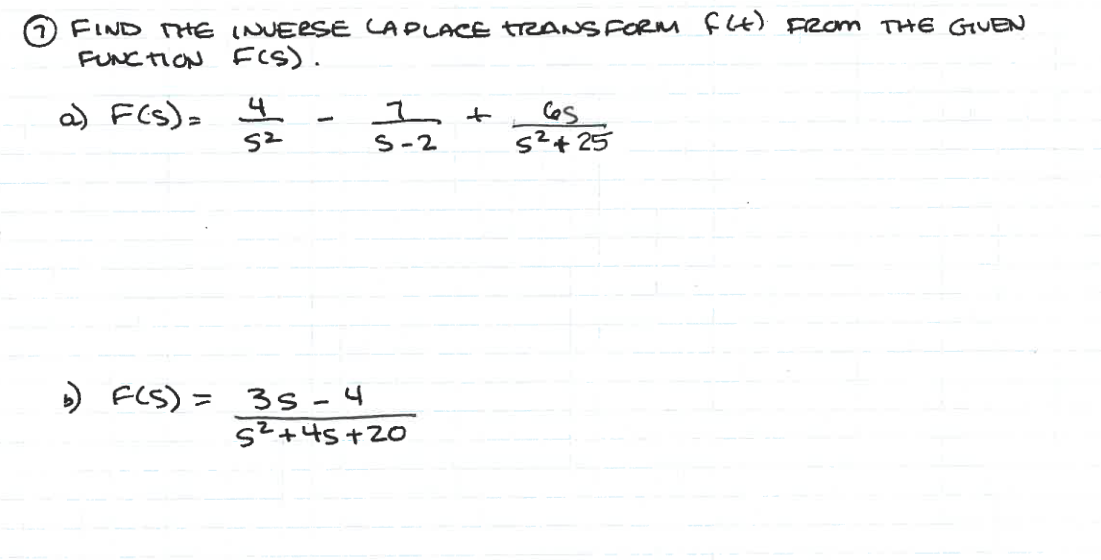 ⑦ FIND THE INVERSE LAPLACE TRANSFORM f(t) FROM THE GIVEN
FUNCTION F(S).
a) F(S) = 4/S² - 7/(S-2) + 6S/(S²+25)
b) F(S) = (3S - 4)/(S²+4S+20)